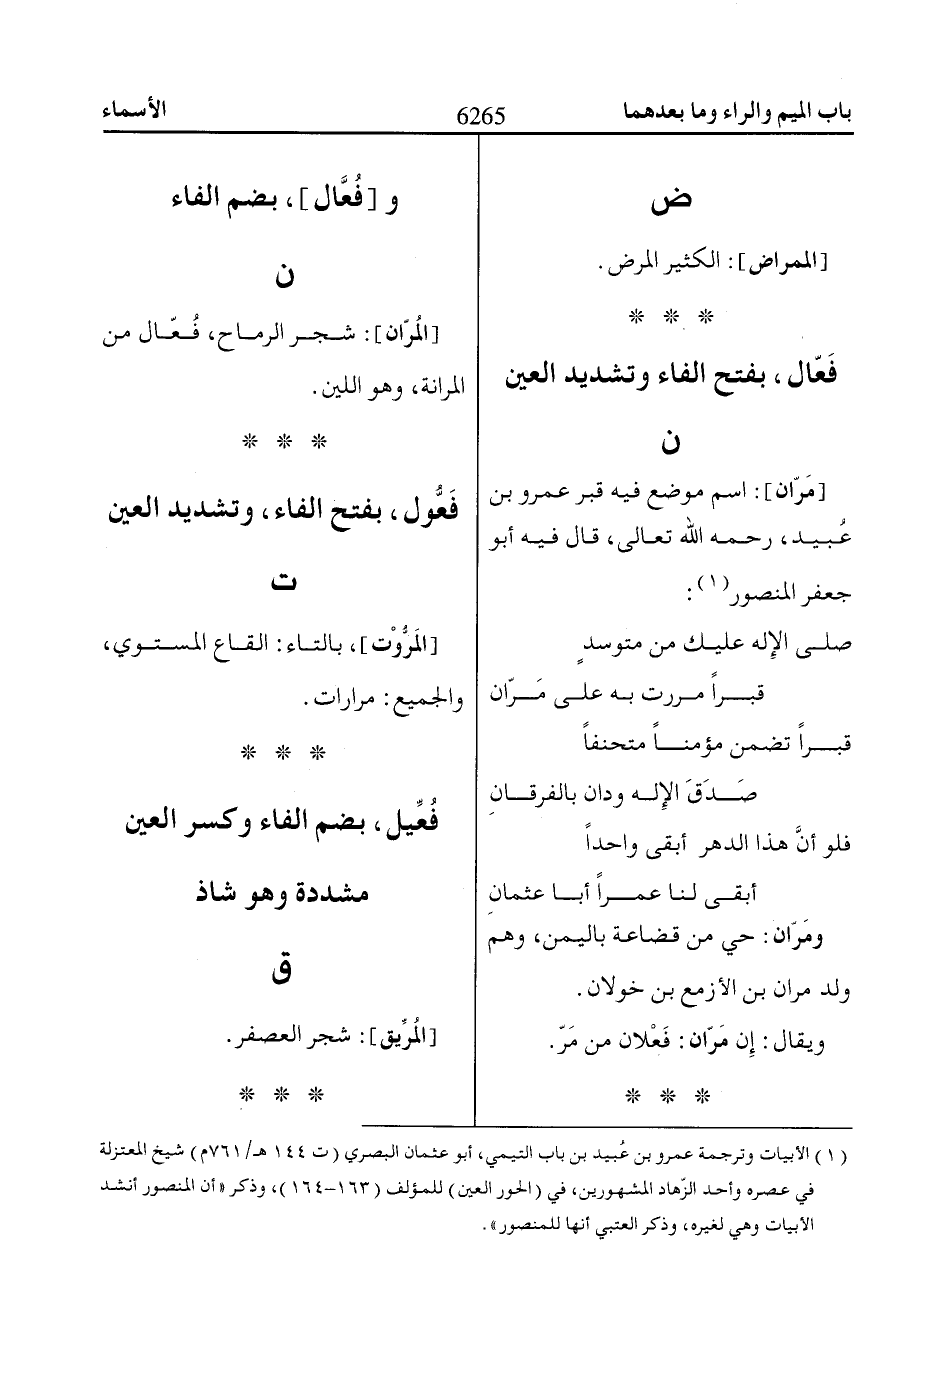 باب الميم والراء وما بعدهما
6265
الأسماء
ض
[الممراض]: الكثير المرض.
* * *
فَعّال، بفتح الفاء وتشديد العين
ن
[مَرّان]: اسم موضع فيه قبر عمرو بن
عُبيد، رحمه الله تعالى، قال فيه أبو
جعفر المنصور(١):
صلى الإله عليك من متوسدٍ
قبراً مررت به على مَرّان
قبراً تضمن مؤمناً متحنفاً
صَدَقَ الإله ودان بالفرقانِ
فلو أنَّ هذا الدهر أبقى واحداً
أبقى لنا عمراً أبا عثمانِ
ومَرّان: حي من قضاعة باليمن، وهم
ولد مران بن الأزمع بن خولان.
ويقال: إن مَرّان: فَعْلان من مَرّ.
* * *
و [فُعَّال]، بضم الفاء
ن
[المُرّان]: شجر الرماح، فُعّال من
المرانة، وهو اللين.
* * *
فَعُّول، بفتح الفاء، وتشديد العين
ت
[المَرُّوْت]، بالتاء: القاع المستوي،
والجميع: مرارات.
* * *
فُعِّيل، بضم الفاء وكسر العين
مشددة وهو شاذ
ق
[المُرِّيق]: شجر العصفر.
* * *
(١) الأبيات وترجمة عمرو بن عُبيد بن باب التيمي، أبو عثمان البصري (ت ١٤٤ هـ/٧٦١م) شيخ المعتزلة
في عصره وأحد الزّهاد المشهورين، في (الحور العين) للمؤلف (١٦٣-١٦٤)، وذكر «أن المنصور أنشد
الأبيات وهي لغيره، وذكر العتبي أنها للمنصور».